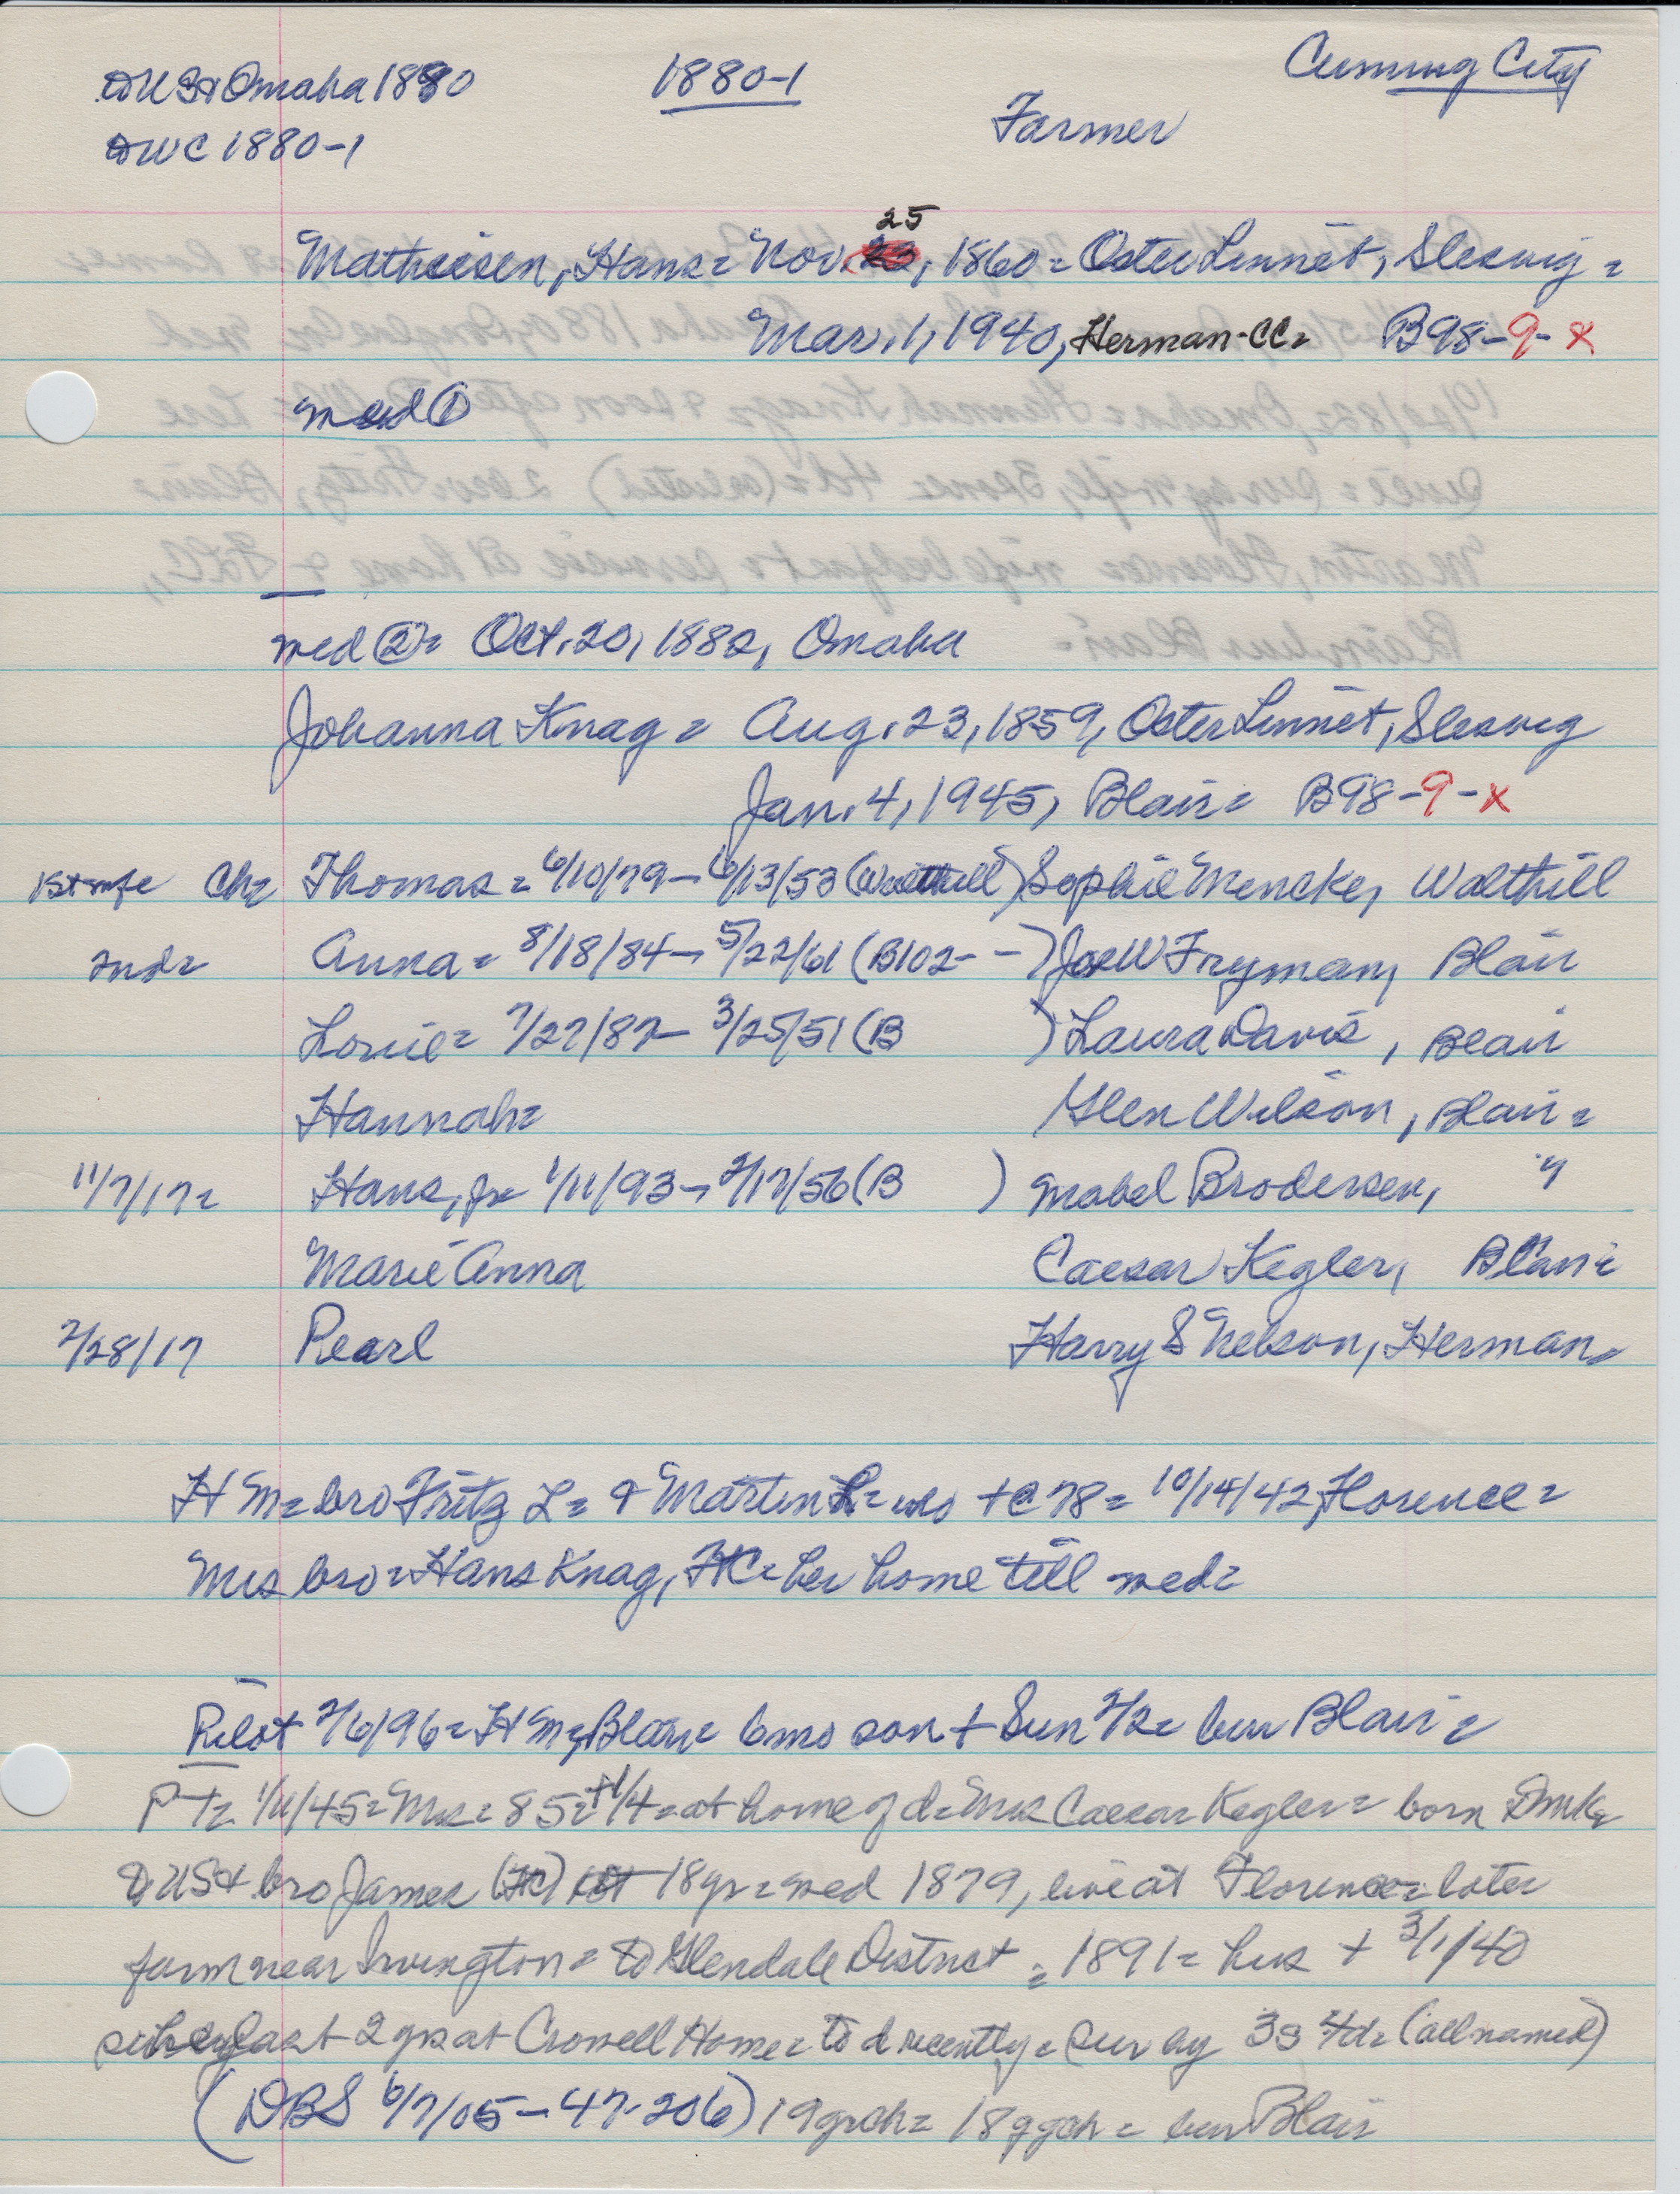 to US & Omaha 1880 1880-1 Cuming City
to WC 1880-1 Farmer
25
Mathiesen, Hans = Nov. 23, 1860 = Oster Linnet, Slesvig =
Mar. 1, 1940, Herman-CC = B98-9-x
med ①
med ② = Oct. 20, 1882, Omaha
Johanna Knag = Aug. 23, 1859, Oster Linnet, Slesvig
Jan. 4, 1945, Blair = B98-9-x
1st wife Ch = Thomas = 6/10/79 - 6/13/53 (Walthill) Sophie Mencke, Walthill
2nd = Anna = 8/18/84 - 5/22/61 (B102- -) Joe W Fryman, Blair
Louie = 7/27/87 - 3/25/51 (B ) Laura Davis, Blair
Hannah = Glen Wilson, Blair =
11/7/17 = Hans, Jr 1/11/93 - 2/17/56 (B ) Mabel Brodersen, "
Marie Anna Caesar Kegler, Blair =
2/28/17 Pearl Harry S Nelson, Herman
H M = bro Fritz L = & Martin = + @ 78 = 10/14/42, Florence =
Mrs bro = Hans Knag, = her home till med =
Pilot 2/6/96 = H M, Blair = 6 mo son + Sun 2/2 = bur Blair =
PT = 1/11/45 = Mrs = 85 = + 1/4 = at home of d = Mrs Caesar Kegler = born Dmk =
to US & bro James 18 yr = med 1879, live at Florence = later
farm near Irvington = to Glendale District = 1891 = hus + 3/1/40
last 2 yrs at Crowell Home = to d recently = sur by 3s 4d = (all named)
(DBS 6/7/05 - 47-206) 19 grch = 18 ggch = bur Blair